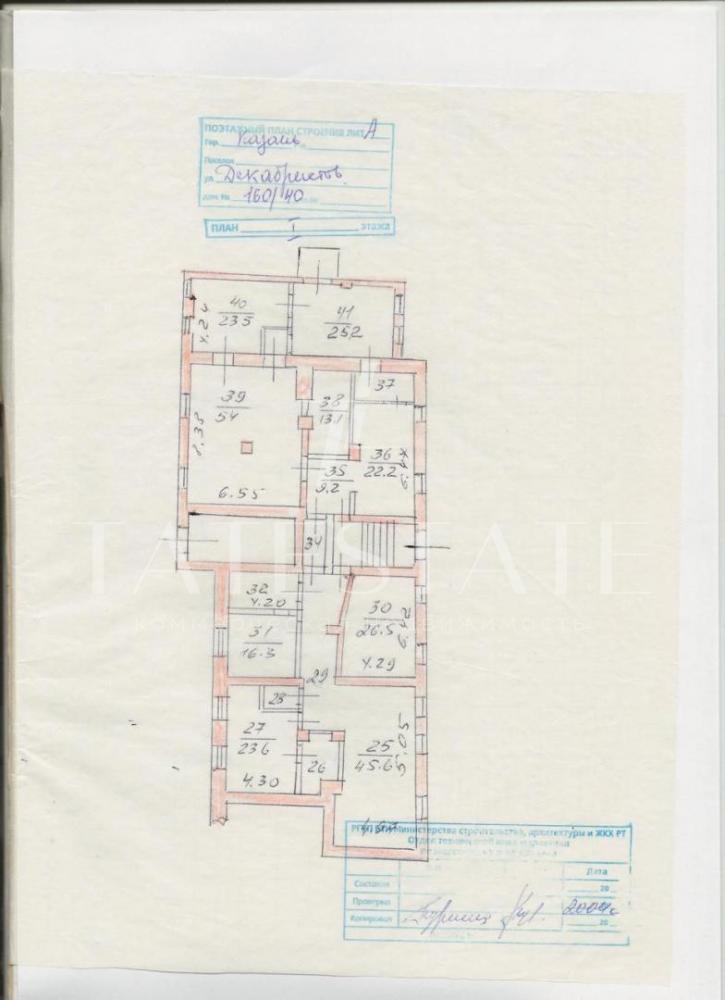 ПОЭТАЖНЫЙ ПЛАН СТРОЕНИЯ ЛИТ. А
Гор. Казань
Поселок
ул. Декабристов
дом № 160/40
ПЛАН I ЭТАЖА
40
23.5
41
25.2
39
54
8.38
6.55
38
13.1
37
36
22.2
35
9.2
34
TATESTATE
32
4.20
31
16.3
30
26.5
4.29
29
28
27
23.6
4.30
26
25
45.6
5.05
РГУП БТИ Министерства строительства, архитектуры и ЖКХ РТ
Дата
Составил
20
Проверил
Копировал
2004г
20